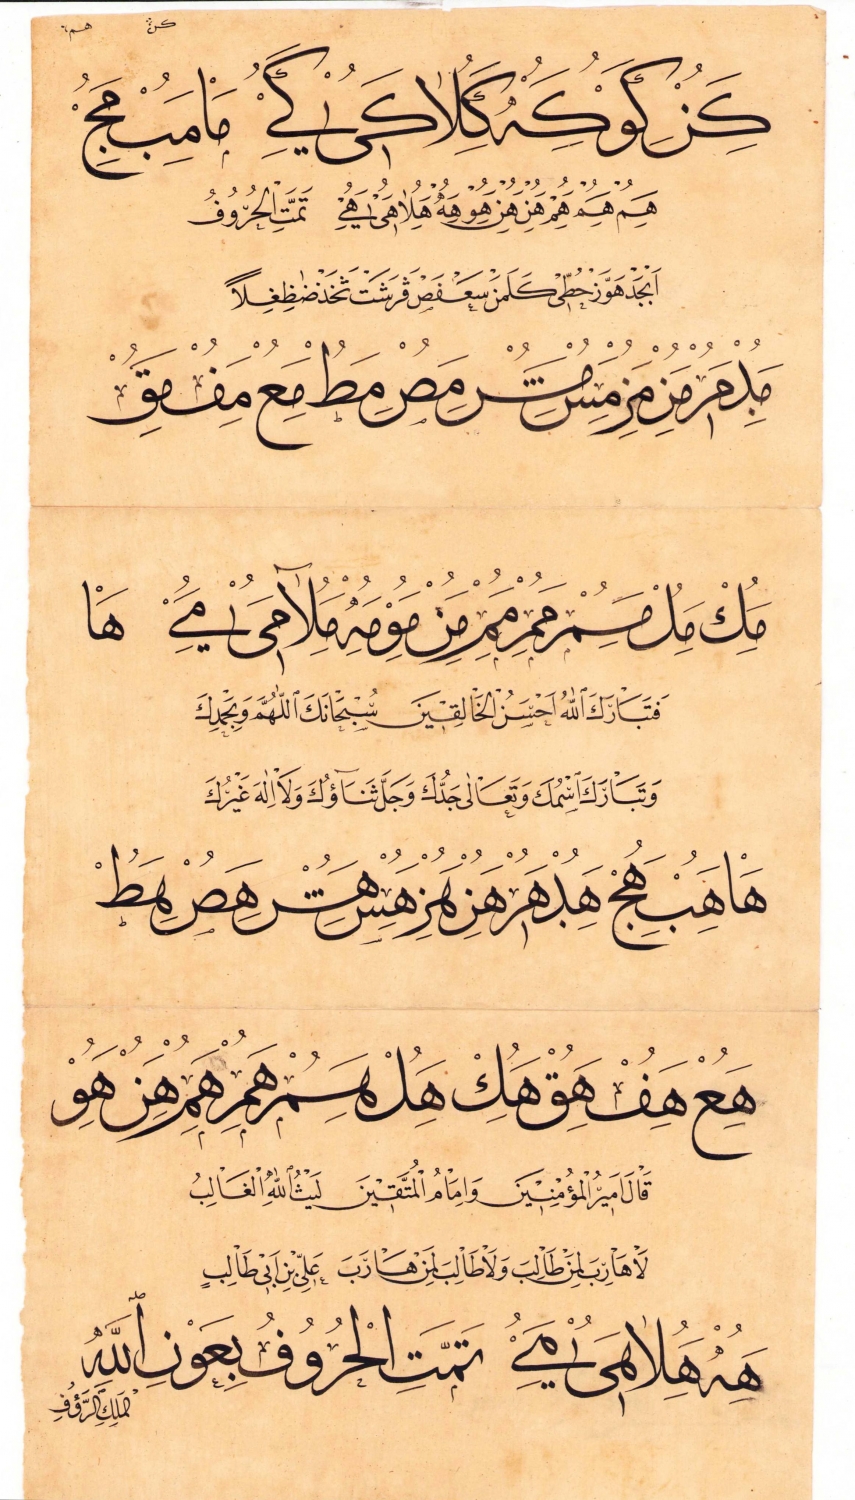 كن هم
كن كو كه كلا كى كے ما مب مج
هم هم هم هن هن هو هه هلا هى هے تمت الحروف
ابجد هوز حطي كلمن سعفص قرشت ثخذ ضظغلا
مد مر من مز مس مش مص مط مع مف مق
مك مل مسم مم مم من مو مه ملا مى مے ها
فَتَبَارَكَ اللّٰهُ اَحْسَنُ الْخَالِقِينَ سُبْحَانَكَ اللّٰهُمَّ وَبِحَمْدِكَ
وَتَبَارَكَ اسْمُكَ وَتَعَالٰى جَدُّكَ وَجَلَّ ثَنَاؤُكَ وَلَا اِلٰهَ غَيْرُكَ
ها هب هج هد هر هن هز هس هش هص هط
هع هف هق هك هل هسم هم هم هن هو
قَالَ اَمِيرُ الْمُؤْمِنِينَ وَاِمَامُ الْمُتَّقِينَ لَيْثُ اللّٰهِ الْغَالِبُ
لَا هَارِبَ لِمَنْ طَالَبَ وَلَا طَالِبَ لِمَنْ هَارَبَ عَلِيُّ بْنُ اَبِي طَالِبٍ
هه هلا هى مے تَمَّتِ الْحُرُوفُ بِعَوْنِ اللّٰهِ
الْمَلِكِ الرَّؤُفِ